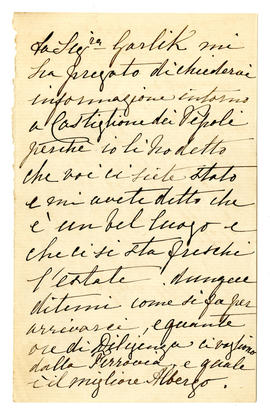 La Sig.ra Garlik mi
ha pregato di chiedervi
informazione intorno
a Castiglione dei Pepoli
perchè io li ho detto
che voi ci siete stato
e mi avete ditto che
è un bel luogo e
che ci si sta freschi
l'estate. dunque
ditemi come si fa per
arrivarci, e quante
ore di Diligenza ci vogliono
dalla Ferrovia, e quale
è il migliore Albergo.